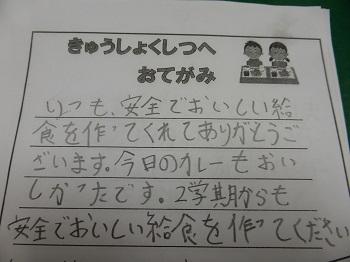 きゅうしょくしつへ
おてがみ
いつも、安全でおいしい給
食を作ってくれてありがとうご
ざいます。今日のカレーもおい
しかったです。2学期からも
安全でおいしい給食を作ってください